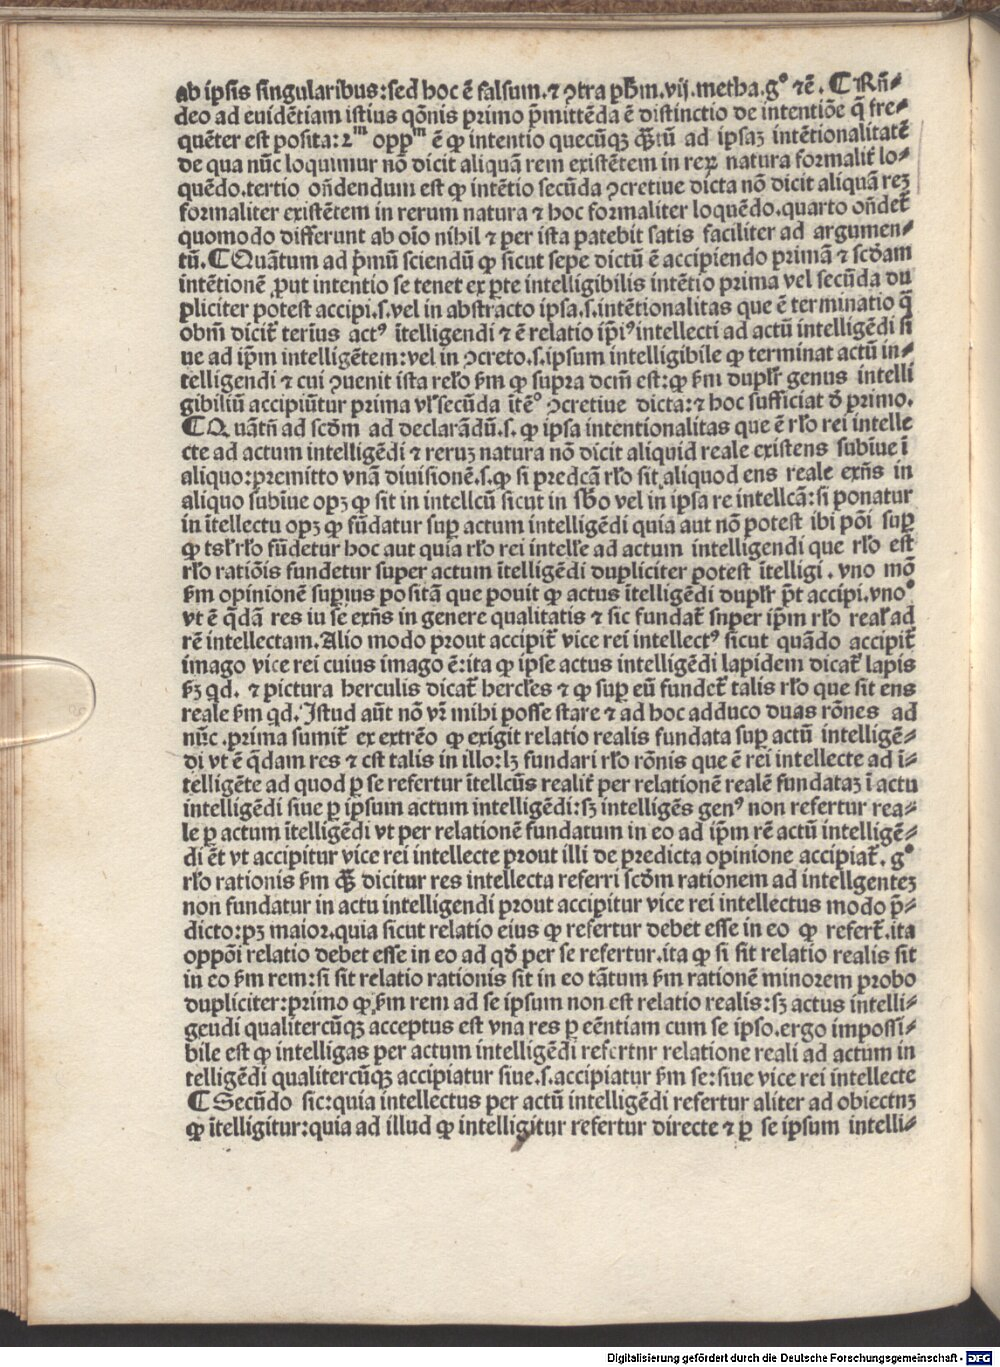 ab ipsis singularibus:sed hoc ē falsum.⁊ ꝯtra ph̄m.vij.metha.g° ⁊ē. ¶ Rn̄⸗
deo ad euidētiam istius qōnis primo p̄mittēda ē distinctio de intentiōe q̄ fre⸗
quēter est posita: 2ᵐ opp̄ᵐ ē ꝙ intentio quecūqꝫ q̄ꝫtū ad ipsaꝫ intētionalitatē
de qua nūc loquimur nō dicit aliquā rem existētem in reꝝ natura formalit̄ lo⸗
quēdo.tertio on̄dendum est ꝙ intētio secūda ꝯcretiue dicta nō dicit aliquā reꝫ
formaliter existētem in rerum natura ⁊ hoc formaliter loquēdo.quarto on̄det̄
quomodo differunt ab oīo nihil ⁊ per ista patebit satis faciliter ad argumen⸗
tū. ¶ Quātum ad p̄mū sciendū ꝙ sicut sepe dictū ē accipiendo primā ⁊ scd̄am
intētionē ꝓut intentio se tenet ex ꝑte intelligibilis intētio prima vel secūda du
pliciter potest accipi.s.vel in abstracto ipsa.s.intētionalitas que ē terminatio q̄
obm̄ dicit̄ terīus actꝰ ītelligendi ⁊ ē relatio ip̄iꝰ intellecti ad actū intelligēdi si
ue ad ip̄m intelligētem:vel in ꝯcreto.s.ipsum intelligibile ꝙ terminat actū in⸗
telligendi ⁊ cui ꝯuenit ista rel̄o s̄m ꝙ supra dcm̄ est:ꝙ s̄m dupl̄r genus intelli
gibiliū accipiūtur prima vl̄ secūda ītē° ꝯcretiue dicta:⁊ hoc sufficiat d̄ primo.
¶ Quātū ad scd̄m ad declarādū.s. ꝙ ipsa intentionalitas que ē rl̄o rei intelle
cte ad actum intelligēdi ⁊ reruꝫ natura nō dicit aliquid reale existens subīue ī
aliquo:premitto vnā diuisionē.s.ꝙ si predcā rl̄o sit aliquod ens reale exn̄s in
aliquo subīue opꝫ ꝙ sit in intellcū sicut in sb̄o vel in ipsa re intellcā:si ponatur
in ītellectu opꝫ ꝙ fūdatur suꝑ actum intelligēdi quia aut nō potest ibi pōi suꝑ
ꝙ tal̄ rl̄o fūdetur hoc aut quia rl̄o rei intell̄e ad actum intelligendi que rl̄o est
rl̄o ratiōis fundetur super actum ītelligēdi dupliciter potest ītelligi . vno mō
s̄m opinionē supius positā que pouit ꝙ actus ītelligēdi dupl̄r p̄t accipi.vno°
vt ē q̄dā res iu se exn̄s in genere qualitatis ⁊ sic fundat̄ snper ip̄m rl̄o real̄ ad
rē intellectam.Alio modo prout accipit̄ vice rei intellectꝰ sicut quādo accipit̄
imago vice rei cuius imago ē:ita ꝙ ipse actus intelligēdi lapidem dicat̄ lapis
s̄ꝫ qd. ⁊ pictura herculis dicat̄ hercl̄es ⁊ ꝙ suꝑ eū fundet̄ talis rl̄o que sit ens
reale s̄m qd.Istud aūt nō vr̄ mihi posse stare ⁊ ad hoc adduco duas rōnes ad
nūc .prima sumit̄ ex extrēo ꝙ exigit relatio realis fundata suꝑ actū intelligē⸗
di vt ē q̄dam res ⁊ est talis in illo:lꝫ fundari rl̄o rōnis que ē rei intellecte ad ī⸗
telligēte ad quod ꝑ se refertur ītellcūs realit̄ per relationē realē fundataꝫ ī actu
intelligēdi siue ꝑ ipsum actum intelligēdi:sꝫ intelligēs genꝰ non refertur rea⸗
le ꝑ actum ītelligēdi vt per relationē fundatum in eo ad ip̄m rē actū intelligē⸗
di ēt vt accipitur vice rei intellecte prout illi de predicta opinione accipiāt̄. g°
rl̄o rationis s̄m q̄ꝫ dicitur res intellecta referri scd̄m rationem ad intellgenteꝫ
non fundatur in actu intelligendi prout accipitur vice rei intellectus modo p̄⸗
dicto:pꝫ maior.quia sicut relatio eius ꝙ refertur debet esse in eo ꝙ refert̄.ita
oppōi relatio debet esse in eo ad qd̄ per se refertur.ita ꝙ si sit relatio realis sit
in eo s̄m rem:si sit relatio rationis sit in eo tātum s̄m rationē minorem probo
dupliciter:primo ꝙ s̄m rem ad se ipsum non est relatio realis:sꝫ actus intelli⸗
geudi qualitercūqꝫ acceptus est vna res ꝑ eēntiam cum se ipso.ergo impossi⸗
bile est ꝙ intelligas per actum intelligēdi refertnr relatione reali ad actum in
telligēdi qualitercūqꝫ accipiatur siue.s.accipiatur s̄m se:siue vice rei intellecte
¶ Secūdo sic:quia intellectus per actū intelligēdi refertur aliter ad obiectnꝫ
ꝙ ītelligitur:quia ad illud ꝙ intelligitur refertur directe ⁊ ꝑ se ipsum intelli⸗
Digitalisierung gefördert durch die Deutsche Forschungsgemeinschaft - DFG